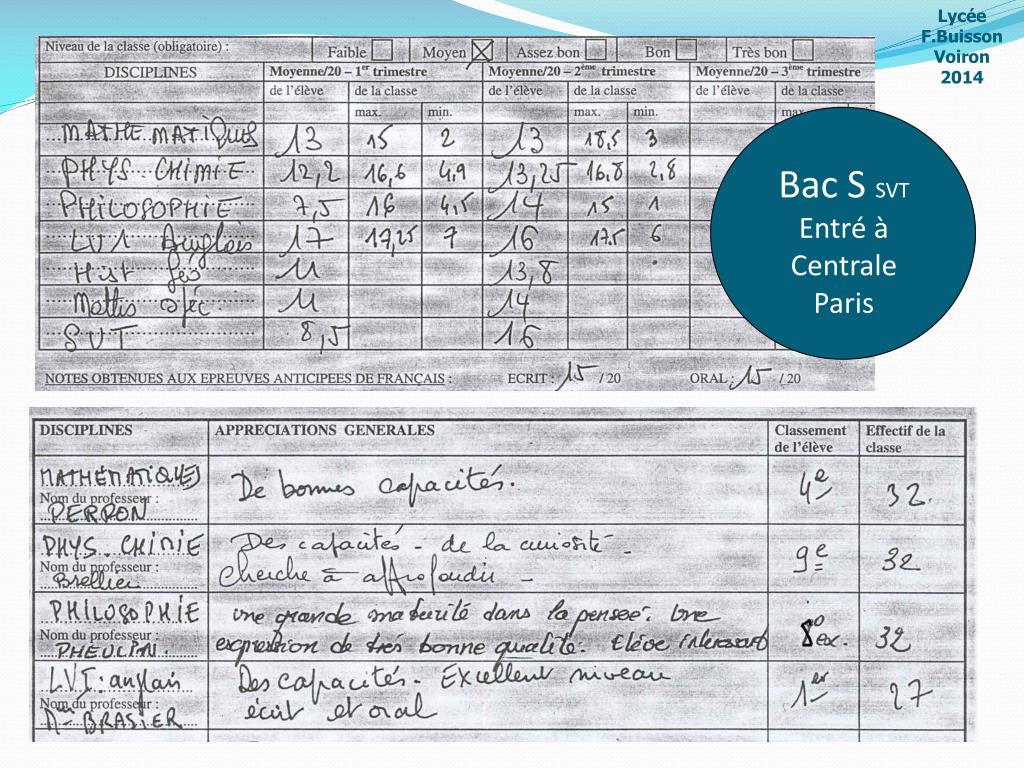 Lycée
F.Buisson
Voiron
2014
Niveau de la classe (obligatoire) : Faible Moyen Assez bon Bon Très bon
DISCIPLINES Moyenne/20 – 1er trimestre Moyenne/20 – 2ème trimestre Moyenne/20 – 3ème trimestre
de l'élève de la classe de l'élève de la classe de l'élève de la classe
max. min. max. min. max.
MATHEMATIQUES 13 15 2 13 18,5 3
PHYS CHIMIE 12,2 16,6 4,9 13,25 16,8 2,8
PHILOSOPHIE 7,5 16 4,5 14 15 1
LV1 Anglais 17 17,25 7 16 17.5 6
Hist géo 11 13,8
Maths spéc 11 14
SVT 8,5 16
NOTES OBTENUES AUX EPREUVES ANTICIPEES DE FRANÇAIS : ECRIT : 15 / 20 ORAL : 15 / 20
Bac S SVT
Entré à
Centrale
Paris
DISCIPLINES APPRECIATIONS GENERALES Classement Effectif de la
de l'élève classe
MATHÉMATIQUES De bonnes capacités. 4e 32.
Nom du professeur :
PERRON
PHYS. CHIMIE Des capacités - de la curiosité -
Nom du professeur : Cherche à approfondir - 9e 32
Brellier
PHILOSOPHIE une grande maturité dans la pensée. Une
Nom du professeur : expression de très bonne qualité. Elève intéressant 8e ex. 32
LVI: anglais Des capacités. Excellent niveau
Nom du professeur : écrit et oral 1er 27
Me BRASIER